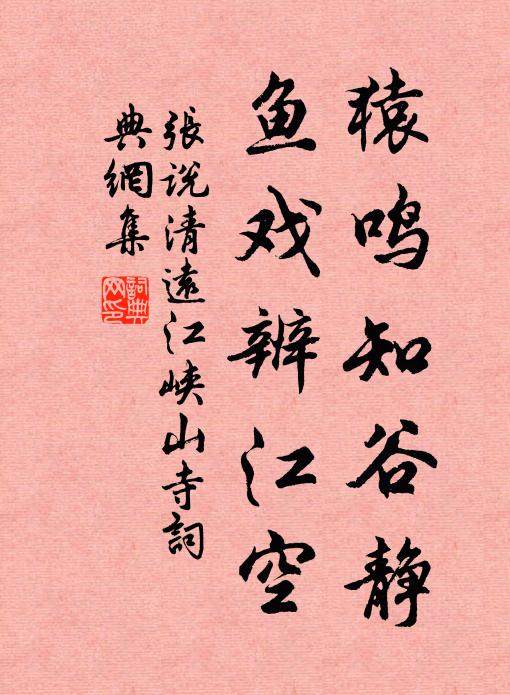 猿鸣知谷静
鱼戏辨江空
張説清遠江峽山寺詞
典網集
詞典
网印